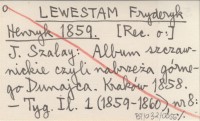 LEWESTAM Fryderyk
Henryk 1859. [Rec. o:]
J. Szalay: Album szczaw-
nickie czyli nabrzeża górne-
go Dunajca. Kraków 1858.
— Tyg. Il. 1 (1859-1860) nr 8: